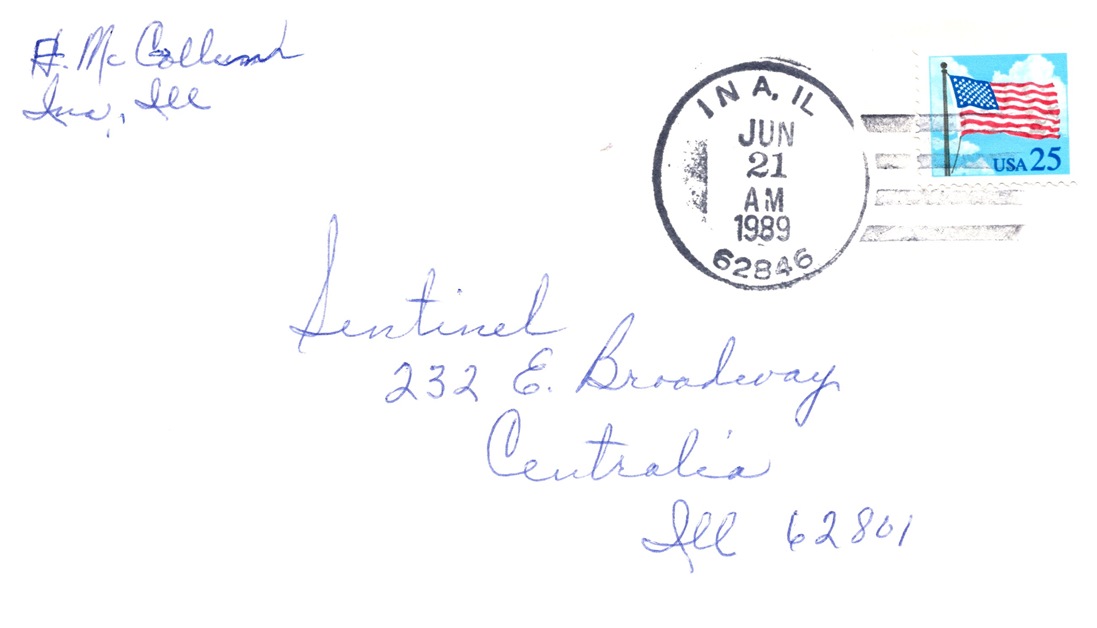 H. McCollum
Ina, Ill
INA, IL
JUN
21
AM
1989
62846
USA 25
Sentinel
232 E. Broadway
Centralia
Ill 62801